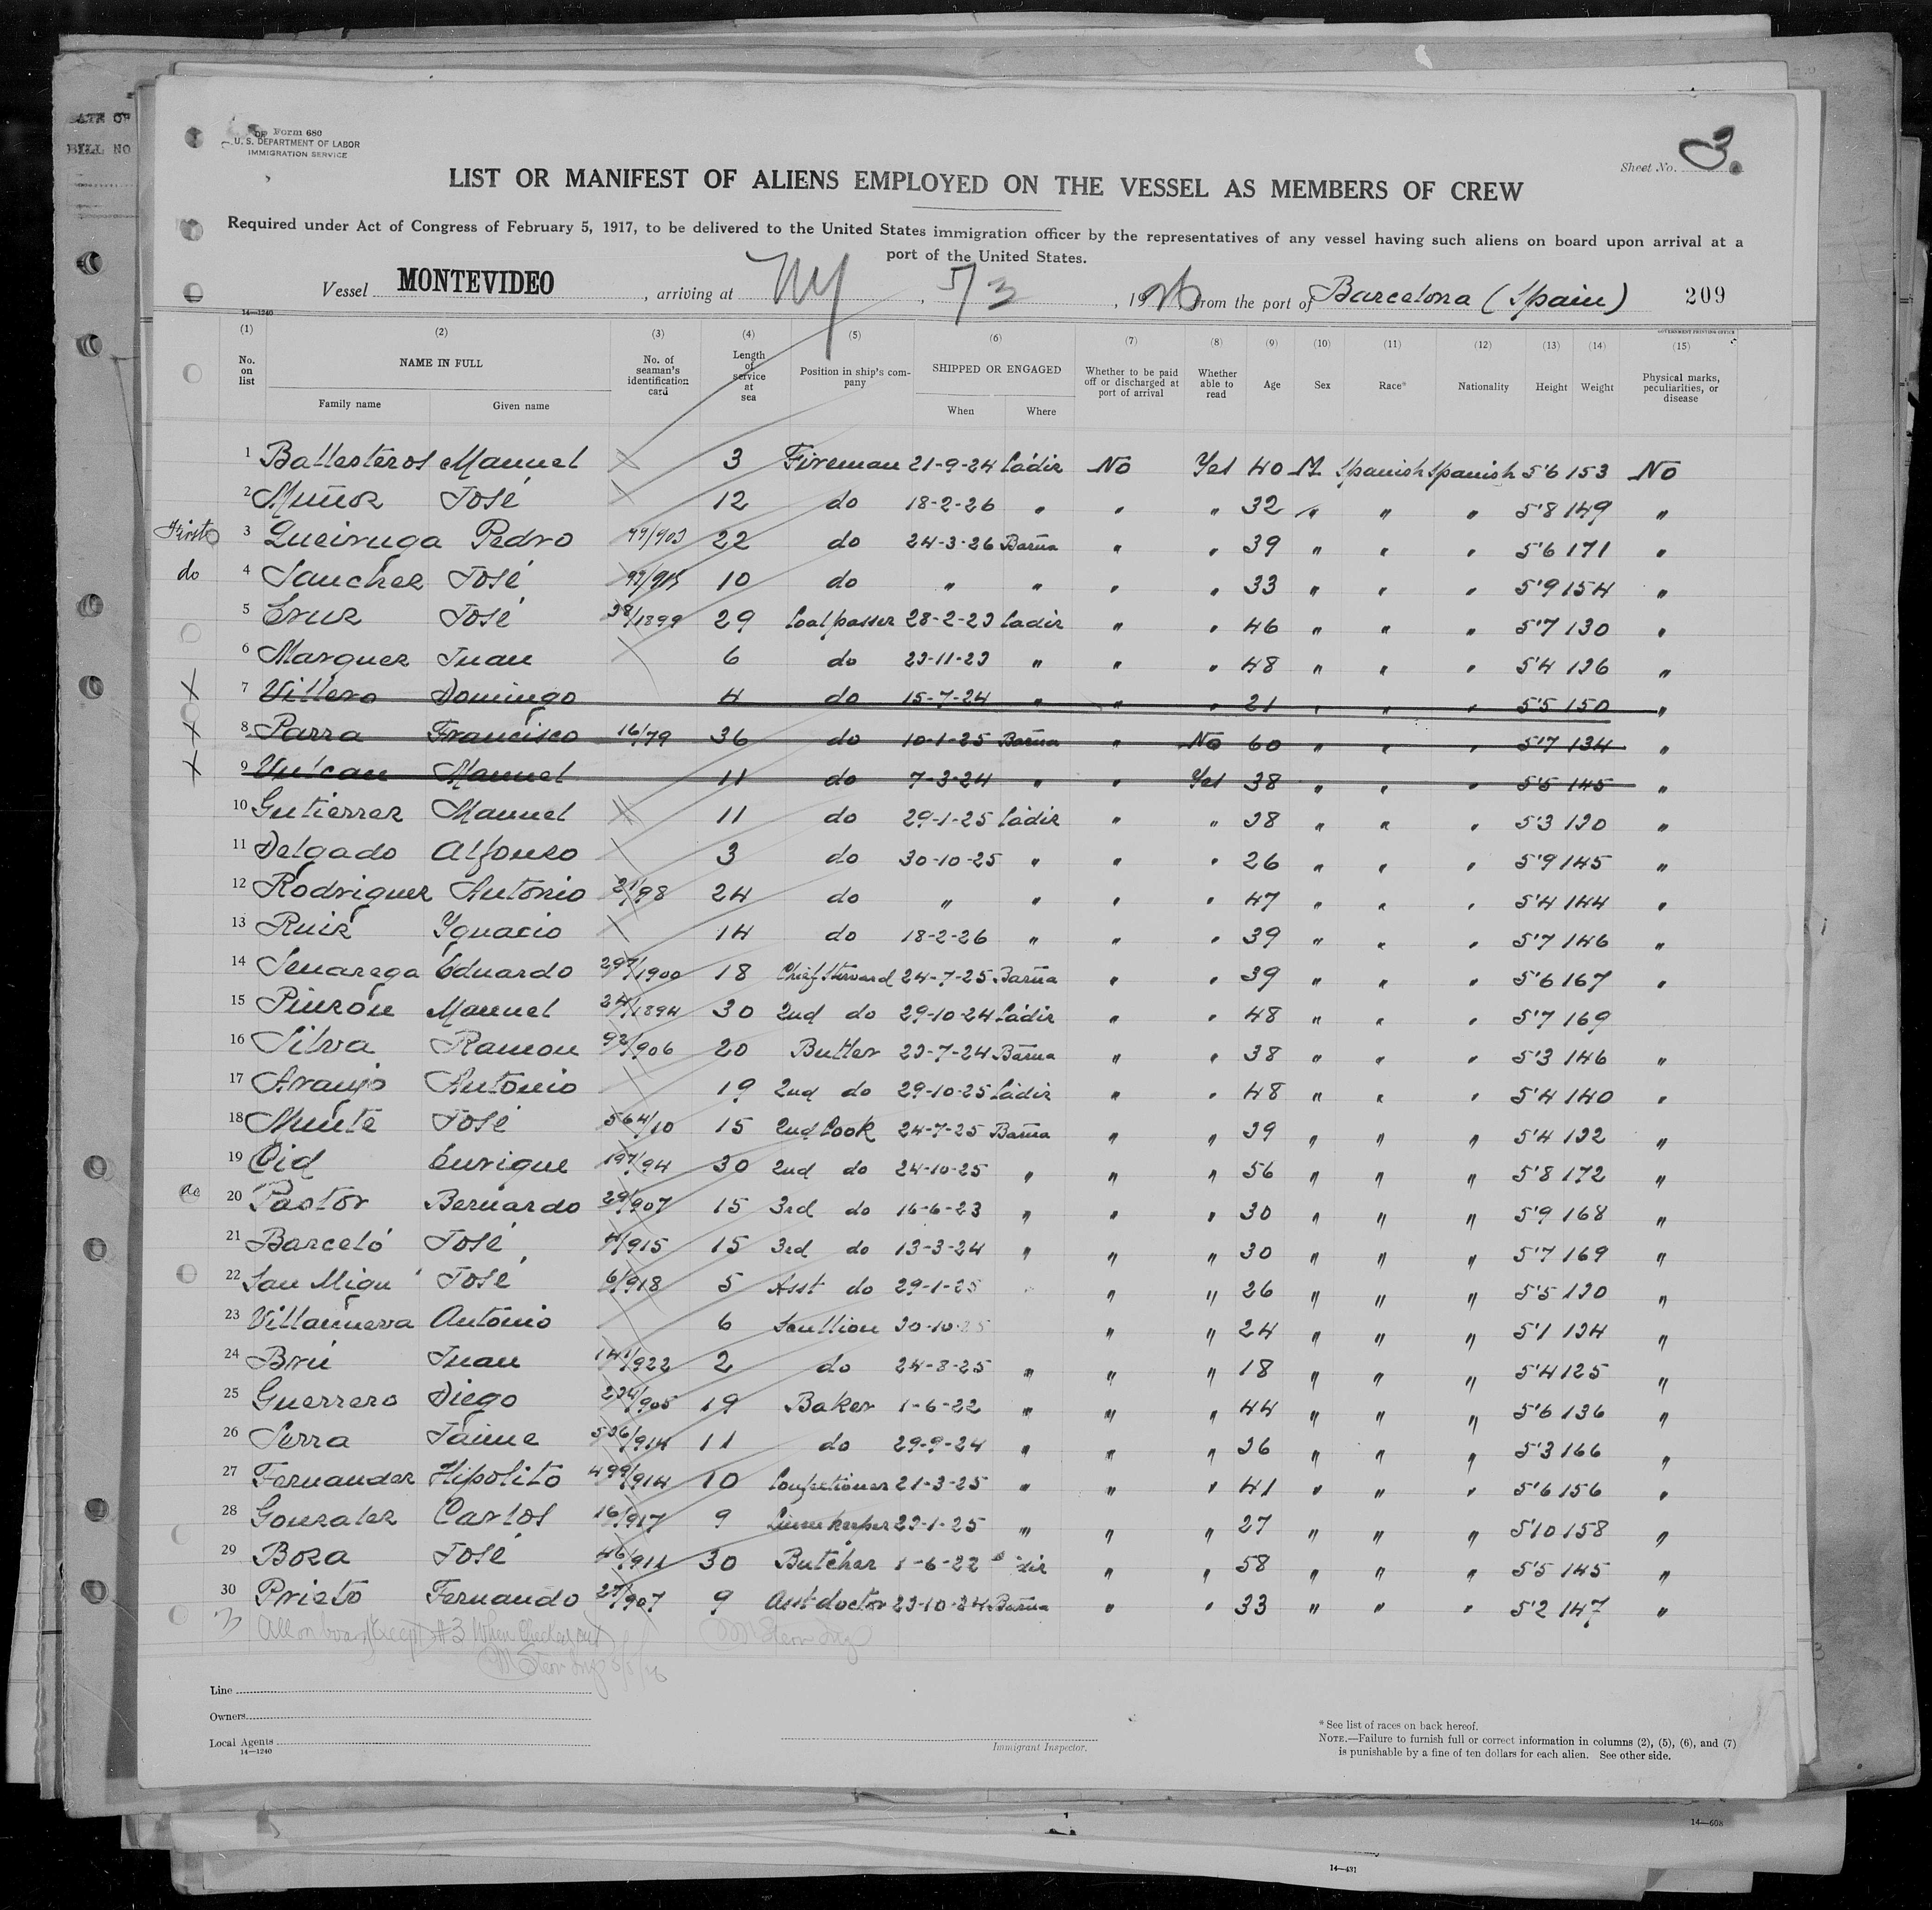 DATE OF
BILL NO
Form 680
U. S. DEPARTMENT OF LABOR
IMMIGRATION SERVICE
Sheet No. 3
LIST OR MANIFEST OF ALIENS EMPLOYED ON THE VESSEL AS MEMBERS OF CREW
Required under Act of Congress of February 5, 1917, to be delivered to the United States immigration officer by the representatives of any vessel having such aliens on board upon arrival at a
port of the United States.
Vessel MONTEVIDEO, arriving at NY, 5/3, 1926, from the port of Barcelona (Spain) 209
14—1240 GOVERNMENT PRINTING OFFICE
(1) (2) (3) (4) (5) (6) (7) (8) (9) (10) (11) (12) (13) (14) (15)
No. on list NAME IN FULL No. of seaman's identification card Length of service at sea Position in ship's company SHIPPED OR ENGAGED Whether to be paid off or discharged at port of arrival Whether able to read Age Sex Race* Nationality Height Weight Physical marks, peculiarities, or disease
Family name Given name When Where
1 Ballesteros Manuel 3 Fireman 21-9-24 Cádiz No Yes 40 M Spanish Spanish 5'6 153 No
2 Muñoz José 12 do 18-2-26 " " " 32 " " " 5'8 149 "
3 Queiruga Pedro 22 do 24-3-26 Barña " " 39 " " " 5'6 171 "
do 4 Sanchez José 10 do " " " " 33 " " " 5'9 154 "
5 Cruz José 38/1899 29 Coalpasser 28-2-23 Cadiz " " 46 " " " 5'7 130 "
6 Marquez Juan 6 do 23-11-23 " " " 48 " " " 5'4 136 "
X 7 Villero Domingo 4 do 15-7-24 " " " 21 " " " 5'5 150 "
X 8 Parra Francisco 16/79 36 do 10-1-25 Barña " No 60 " " " 5'7 134 "
X 9 Vulcan Manuel 11 do 7-3-24 " " Yes 38 " " " 5'5 145 "
10 Gutierrez Manuel 11 do 29-1-25 Cádiz " " 38 " " " 5'3 130 "
11 Delgado Alfonso 3 do 30-10-25 " " " 26 " " " 5'9 145 "
12 Rodriguez Antonio 21/98 24 do " " " " 47 " " " 5'4 144 "
13 Ruiz Ygnacio 14 do 18-2-26 " " " 39 " " " 5'7 146 "
14 Senarega Eduardo 297/1900 18 Chief Steward 24-7-25 Barña " " 39 " " " 5'6 167 "
15 Pinzón Manuel 24/1894 30 2nd do 29-10-24 Cádiz " " 48 " " " 5'7 169
16 Silva Ramon 92/906 20 Butler 23-7-24 Barña " " 38 " " " 5'3 146 "
17 Araujo Antonio 19 2nd do 29-10-25 Cádiz " " 48 " " " 5'4 140 "
18 Munté José 564/10 15 2nd Cook 24-7-25 Barña " " 39 " " " 5'4 132 "
19 Cid Enrique 197/94 30 2nd do 24-10-25 " " " 56 " " " 5'8 172 "
20 Pastor Bernardo 29/907 15 3rd do 16-6-23 " " " 30 " " " 5'9 168 "
21 Barceló José 4/915 15 3rd do 13-3-24 " " " 30 " " " 5'7 169 "
22 San Migu José 6/918 5 Asst do 29-1-25 " " 26 " " " 5'5 130 "
23 Villanueva Antonio 6 Scullion 30-10-25 " " 24 " " " 5'1 134 "
24 Brú Juan 141/922 2 do 24-8-25 " " " 18 " " " 5'4 125 "
25 Guerrero Diego 234/905 19 Baker 1-6-22 " " " 44 " " " 5'6 136 "
26 Serra Jaime 536/914 11 do 29-9-24 " " " 36 " " " 5'3 166 "
27 Fernandez Hipolito 499/914 10 Confectioner 21-3-25 " " " 41 " " " 5'6 156 "
28 Gonzalez Carlos 16/917 9 Linenkeeper 23-1-25 " " " 27 " " " 5'10 158 "
29 Boza José 46/911 30 Butcher 1-6-22 " " 58 " " " 5'5 145 "
30 Prieto Fernando 27/907 9 Asst doctor 23-10-24 Barña " " 33 " " " 5'2 147 "
All on board Except #3 When Checked out
M Stern Insp
M Stern Insp 5/5/26
Line
Owners
Local Agents
14—1240
Immigrant Inspector.
* See list of races on back hereof.
NOTE.—Failure to furnish full or correct information in columns (2), (5), (6), and (7)
is punishable by a fine of ten dollars for each alien. See other side.
14—608
14—431